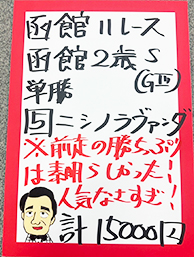 函館11レース
函館2歳S
(GⅢ)
単勝
5ニシノラヴァンダ
※前走の勝ちっぷり
は素晴らしかった!
人気なさすぎ!
計15000円